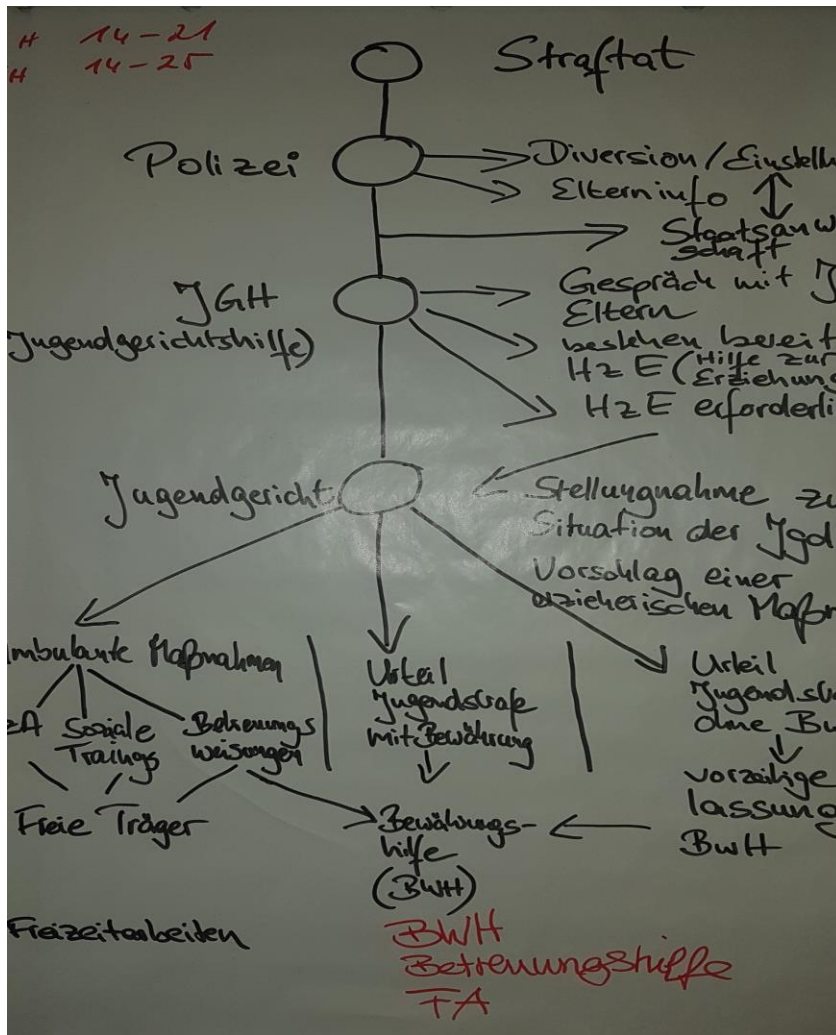 H 14-21
H 14-25
Straftat
Polizei
Diversion/Einstell
Elterninfo
Staatsanw
schaft
JGH
Jugendgerichtshilfe)
Gespräch mit J
Eltern
bestehen bereit
HzE (Hilfe zur
Erziehung
HzE erforderli
Jugendgericht
Stellungnahme zu
Situation der Jgdl
Vorschlag einer
erzieherischen Maßn
ambulante Maßnahmen
zA Soziale
Trainigs
Betreuungs
weisungen
Freie Träger
Urteil
Jugendstrafe
mit Bewährung
Bewährungs-
hilfe
(BWH)
Urteil
Jugendst
ohne Bw
vorzeitige
lassung
BwH
Freizeitarbeiten
BWH
Betreuungshilfe
FA